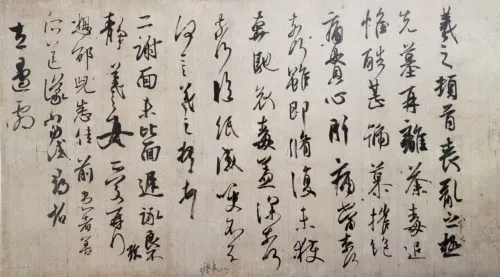 羲之頓首喪亂之極
先墓再離荼毒追
惟酷甚號慕摧絕
痛貫心肝痛當奈何
奈何雖即脩復未獲
奔馳哀毒益深奈何
奈何臨紙感哽不知
何言羲之頓首頓首
二謝面未比面遲詠良
靜羲之女愛再拜
想邵兒悉佳前患者善
所送議當試尋省
左邊劇